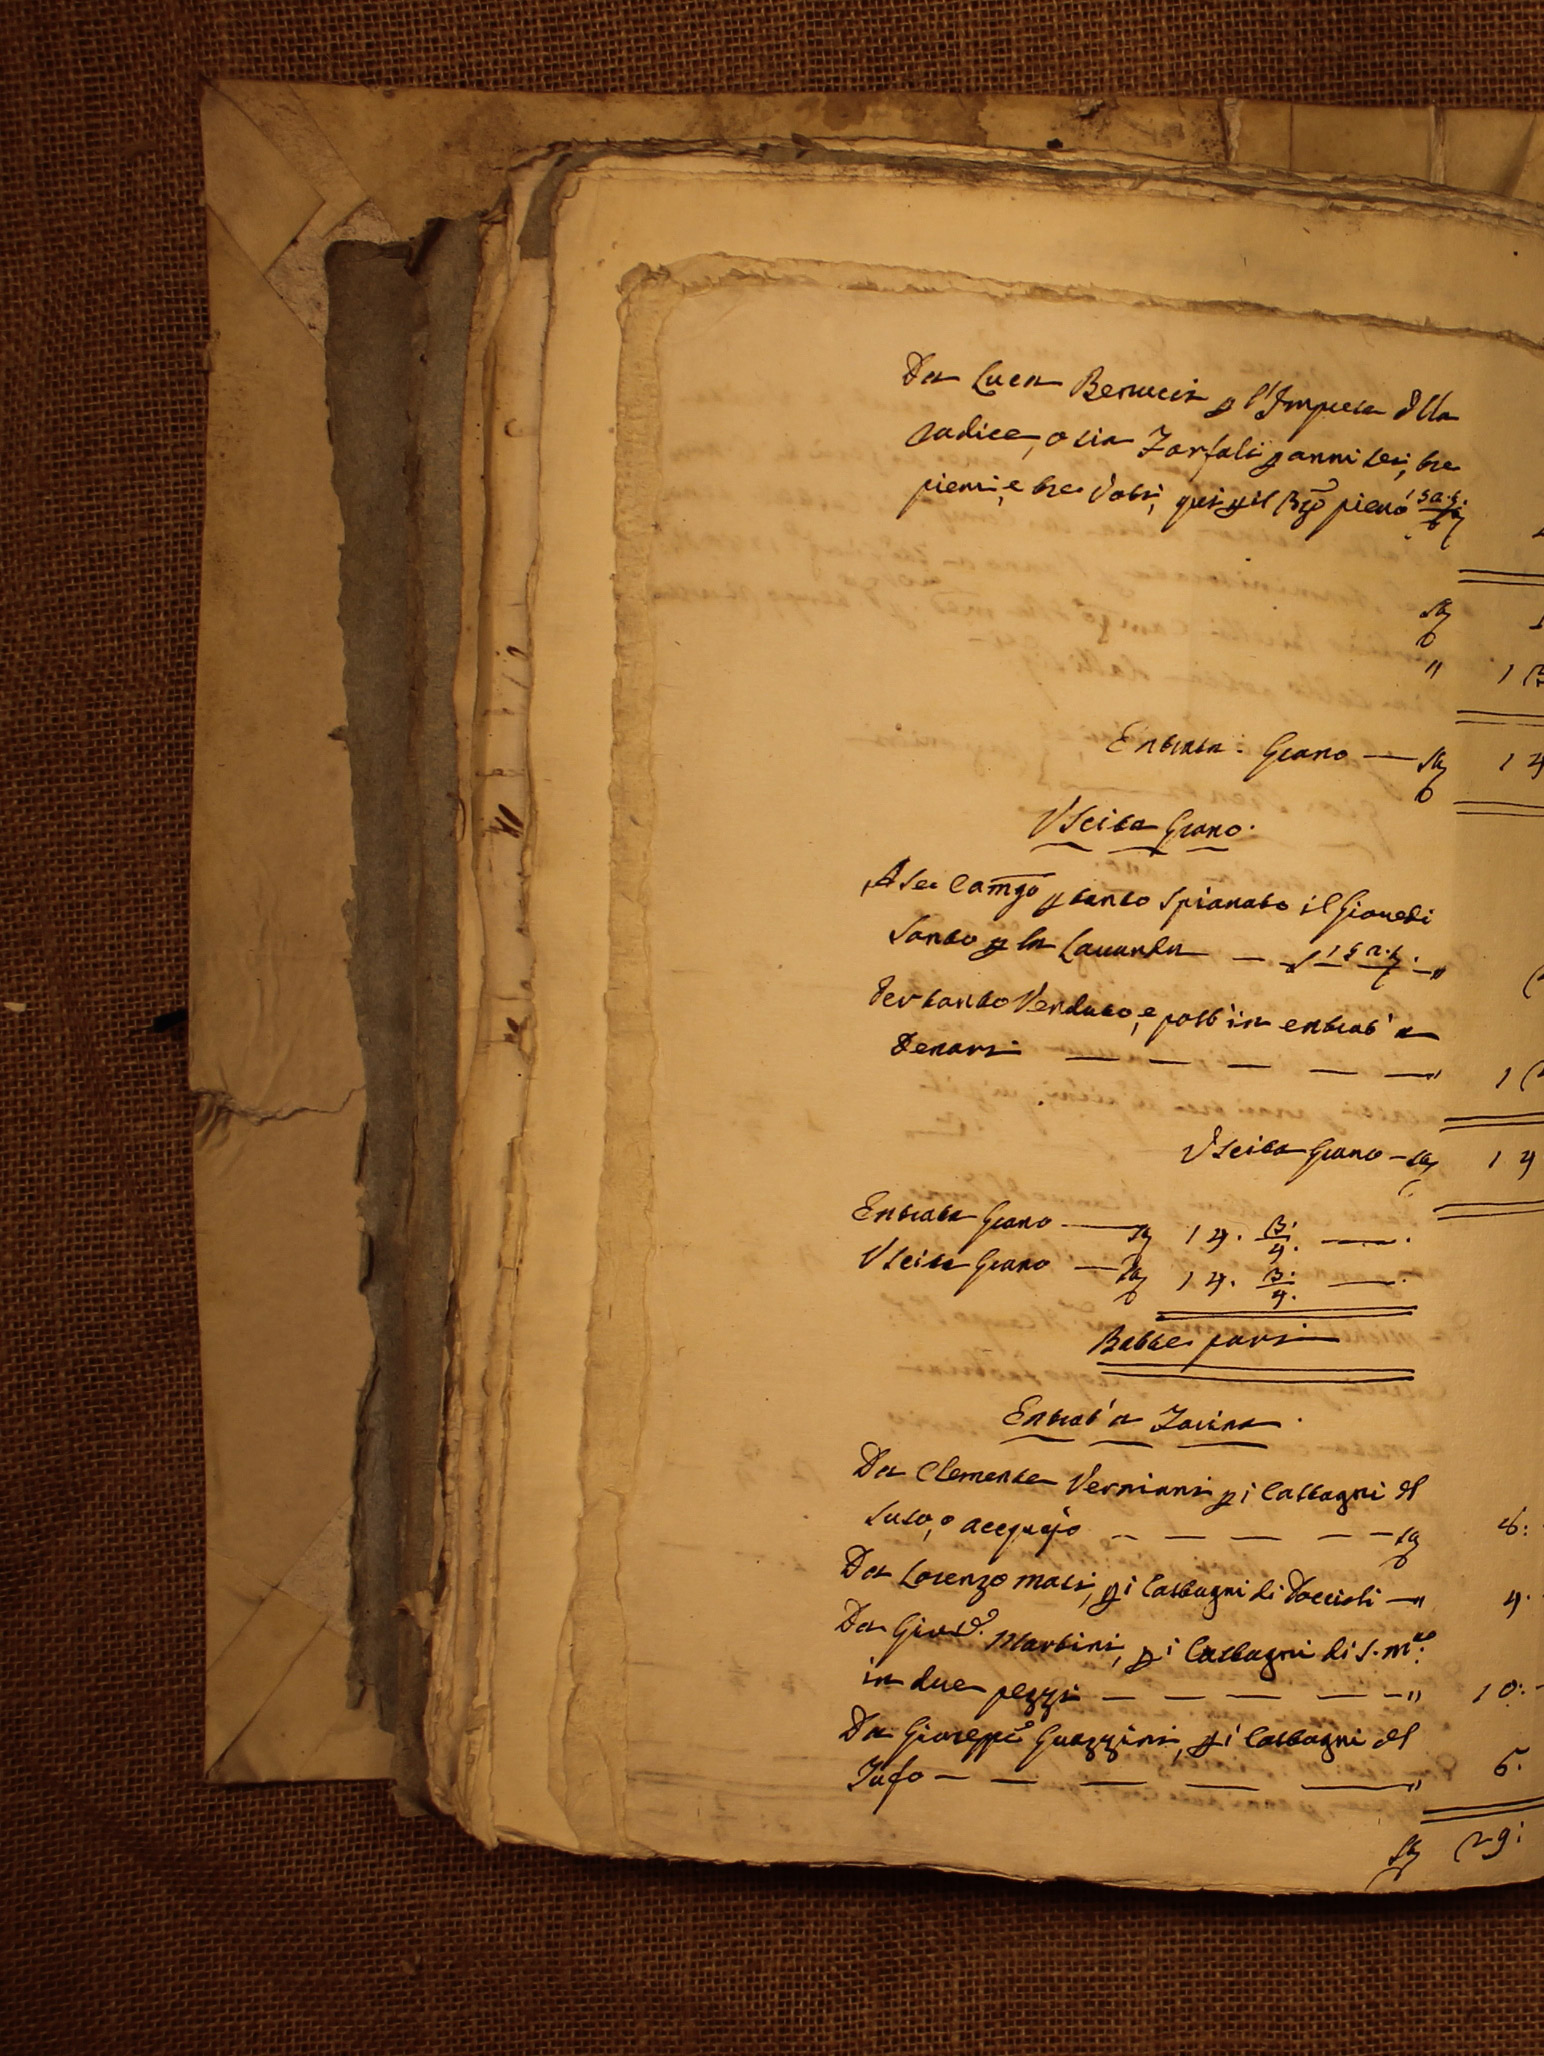 Da Luca Benucci p l'Impresa d'lla
radice, o sia Zarfali p anni sei, tre
pieni, e tre Voti, qui p il pieno
Entrata: Grano — 14
Vscita Grano.
A se Camgo p tanto Spianato il Giovedi
Santo p la Lavanda —
Per tanto Venduto, e post' in entrat' a
Denari — — — — —
Vscita Grano — 14
Entrata Grano — 14. 3/4. —.
Vscita Grano — 14. 3/4. —.
Batte pari
Entrat' a Farina.
Da Clemente Verniani p i Castagni dl
suso, o acquajo — — — — 8:
Da Lorenzo Masi, p i Castagni di Doccioli — 4.
Da Giovd. Martini, p i Castagni di S. Ma:
in due pezzi — — — — 10:
Da Giuseppe Guazzini, p i Castagni dl
Tufo — — — — — 6.
29: